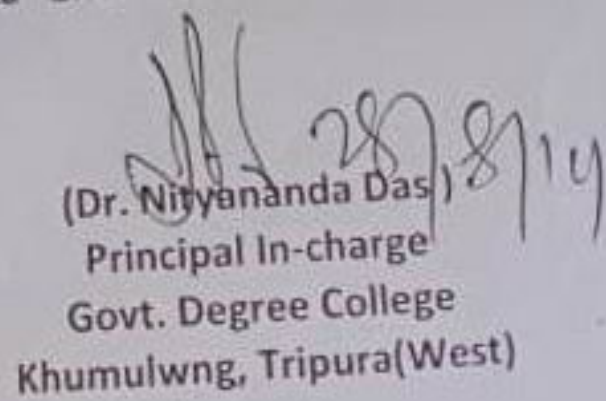 28/8/14
(Dr. Nityananda Das)
Principal In-charge
Govt. Degree College
Khumulwng, Tripura(West)